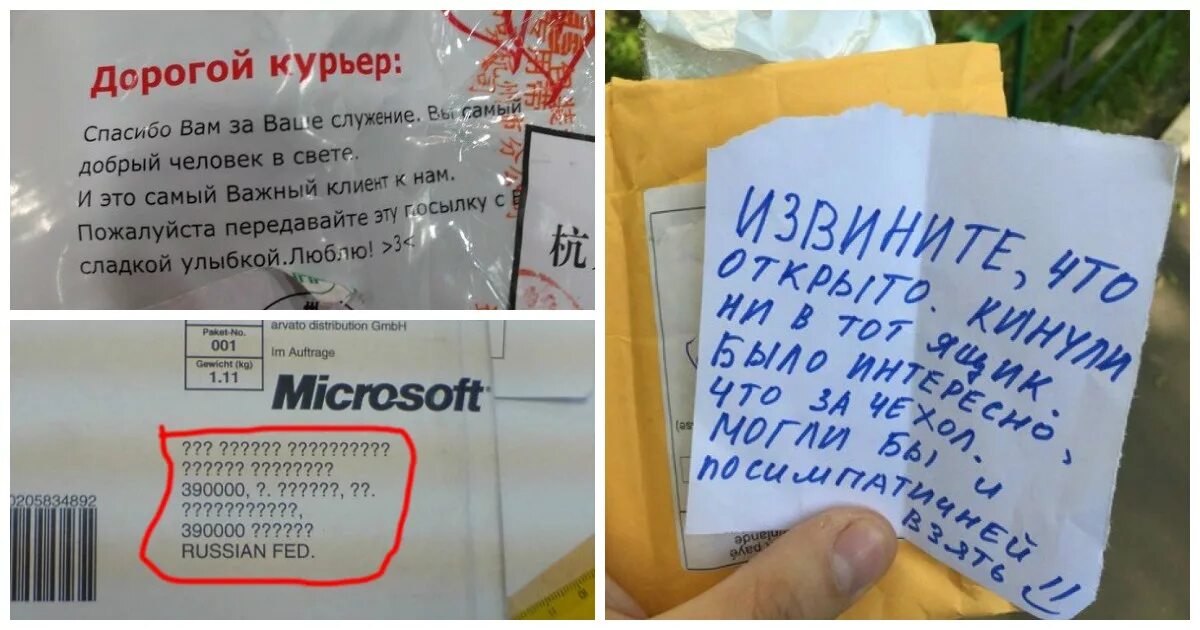 Дорогой курьер:
Спасибо Вам за Ваше служение. Вы самый
добрый человек в свете.
И это самый Важный клиент к нам.
Пожалуйста передавайте эту посылку с
сладкой улыбкой.Люблю! >3<
杭
Paket-No.
001
Gewicht (kg)
1.11
arvato distribution GmbH
Im Auftrage
Microsoft
??? ?????? ??????????
?????? ????????
390000, ?. ??????, ??.
???????????,
390000 ??????
RUSSIAN FED.
0205834892
ИЗВИНИТЕ, ЧТО
ОТКРЫТО. КИНУЛИ
НИ В ТОТ ЯЩИК.
БЫЛО ИНТЕРЕСНО,
ЧТО ЗА ЧЕХОЛ.
МОГЛИ БЫ И
ПОСИМПАТИЧНЕЙ
ВЗЯТЬ